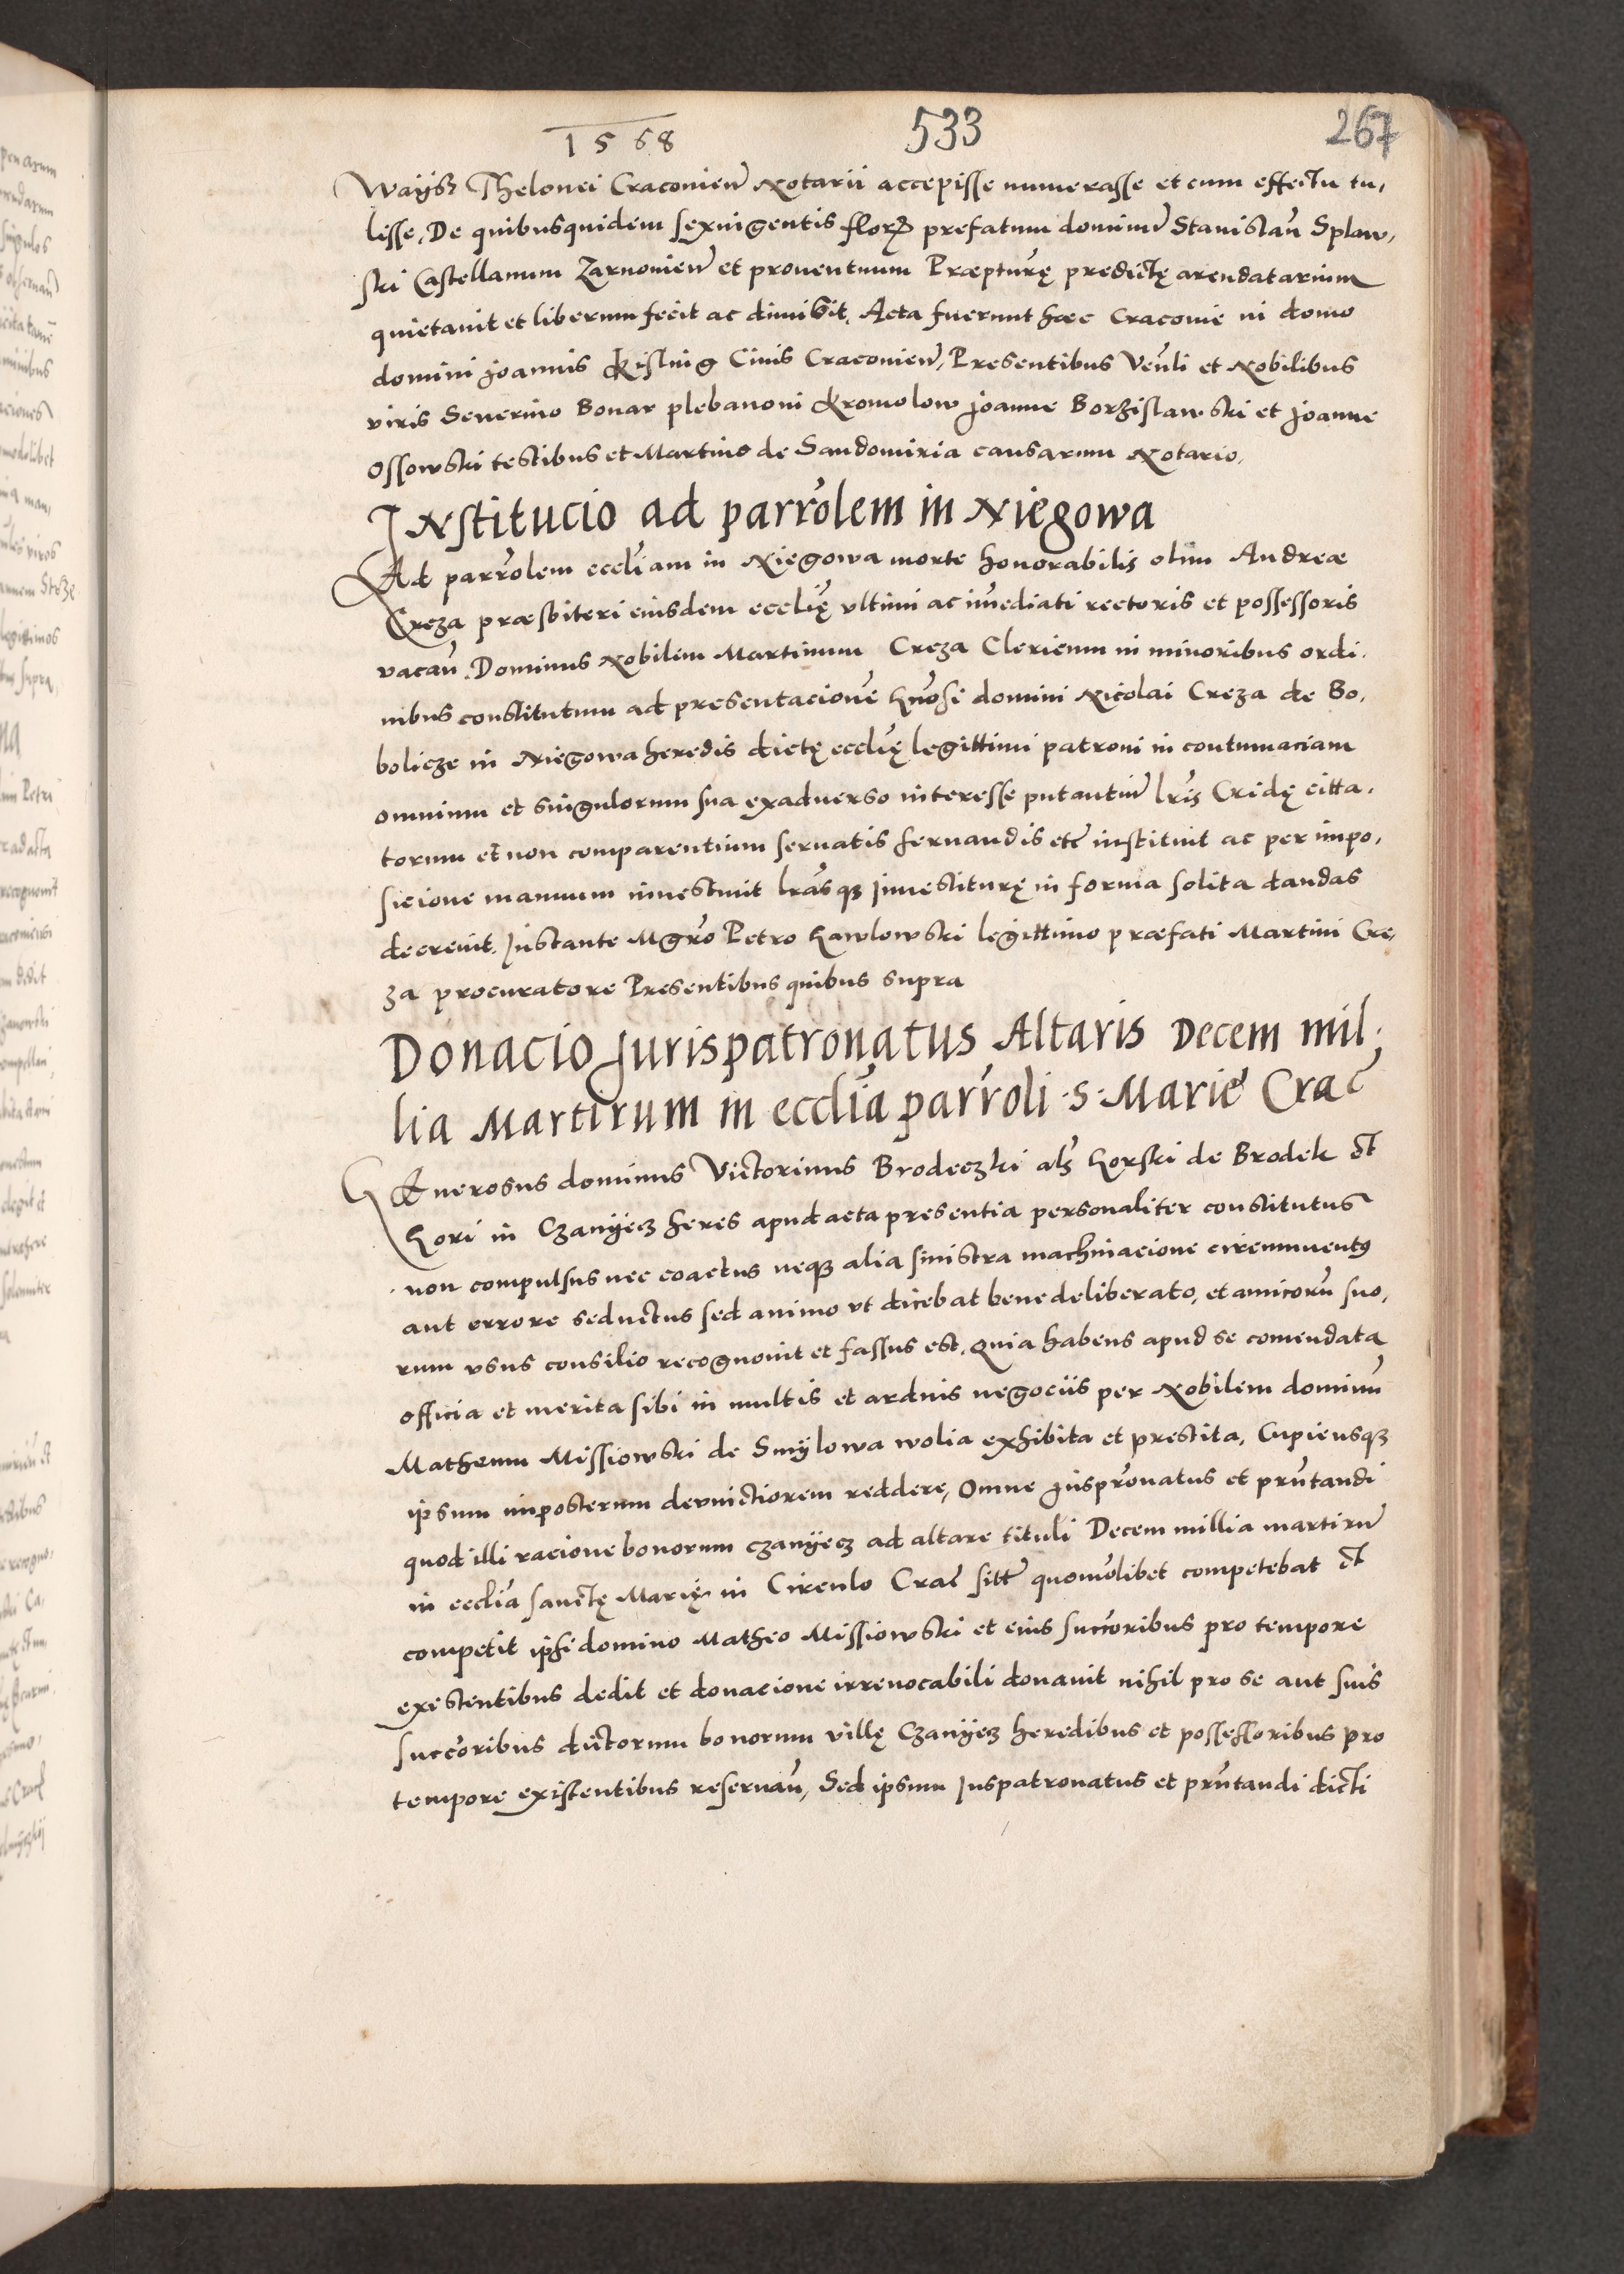 1568 533 267
Waysz Thelonei Cracovień Notarii accepisse numerasse et cum effectu tu,
lisse, De quibusquidem sexvigentis floꝝ prefatum dominū Stanislaū Splaw,
ski Castellanum Zarnovień et proventuum Præpturę predictę arendatarium
quietavit et liberum fecit ac dimisit. Acta fuerunt hæc Cracovie in domo
domini Joannis Kisling Civis Cracovień, Presentibus Veñli et Nobilibus
viris Severino Bonar plebano in Kromolow Joanne Borzislawski et Joanne
Ossowski testibus et Martino de Sandomiria causarum Notario.
Institucio ad parrolem in Niegowa
Ad parrolem ecclīam in Niegowa morte honorabilis olim Andreæ
Creza præsbiteri eiusdem ecclię ultimi ac im̄ediati rectoris et possessoris
vacañ. Dominus Nobilem Martinum Creza Clericum in minoribus ordi,
nibus constitutum ad presentacionē Gñosi domini Nicolai Creza de Bo,
bolicze in Niegowa heredis dictę ecclię legittimi patroni in contumaciam
omnium et singulorum sua exadverso interesse putantiū lr̄is Cridę citta,
torum et non comparentium servatis servandis etc̄ instituit ac per impo,
sicione manuum investivit lr̄asqꝫ Investiturę in forma solita dandas
decrevit. Instante Mgr̄o Petro Gawlowski legittimo præfati Martini Cre,
za procuratore Presentibus quibus supra
Donacio Jurispatronatus Altaris Decem mil,
lia Martirum in ecclīa parroli .S. Marie Crac̄
Generosus dominus Victorinus Brodeczki als̄ Gorski de Brodek et
Gori in Czanyecz heres apud acta presentia personaliter constitutus
non compulsus nec coactus neqꝫ alia sinistra machinacione circumventꝯ
aut errore seductus sed animo ut dicebat bene deliberato, et amicorū suo,
rum usus consilio recognovit et fassus est. Quia habens apud se comendata
officia et merita sibi in multis et arduis negociis per Nobilem dominū
Matheum Missiowski de Smylowa wolia exhibita et prestita, Cupiensqꝫ
ipsum imposterum devinctiorem reddere, Omne Juspr̄onatus et pr̄ntandi
quod illi racione bonorum Czanyecz ad altare tituli Decem millia martirū
in ecclīa sanctę Marię in Circulo Crac̄ sitt̄ quomōlibet competebat et
competit ipsi domino Matheo Missiowski et eius succ̄oribus pro tempore
existentibus dedit et donacione irrevocabili donavit nihil pro se aut suis
succ̄oribus dictorum bonorum villę Czanyecz heredibus et possessoribus pro
tempore existentibus reservañ, Sed ipsum Juspatronatus et pr̄ntandi dicti